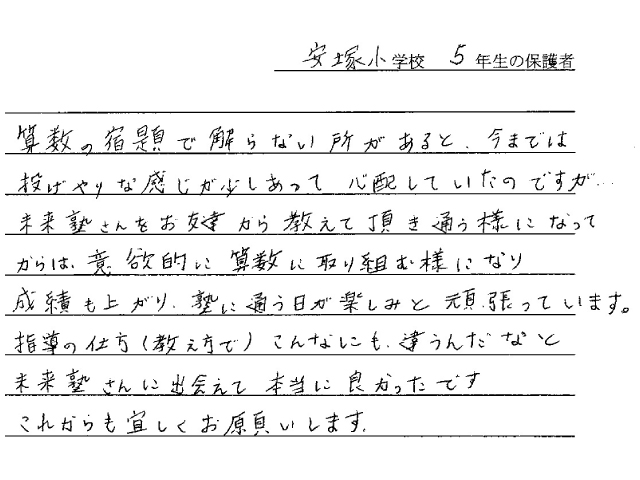 安塚小学校 5年生の保護者
算数の宿題で解らない所があると、今までは
投げやりな感じが少しあって 心配していたのですが…
未来塾さんをお友達から教えて頂き通う様になって
からは、意欲的に算数に取り組む様になり
成績も上がり、塾に通う日が楽しみと頑張っています。
指導の仕方(教え方で)こんなにも、違うんだなと
未来塾さんに出会えて本当に良かったです
これからも宜しくお願いします。